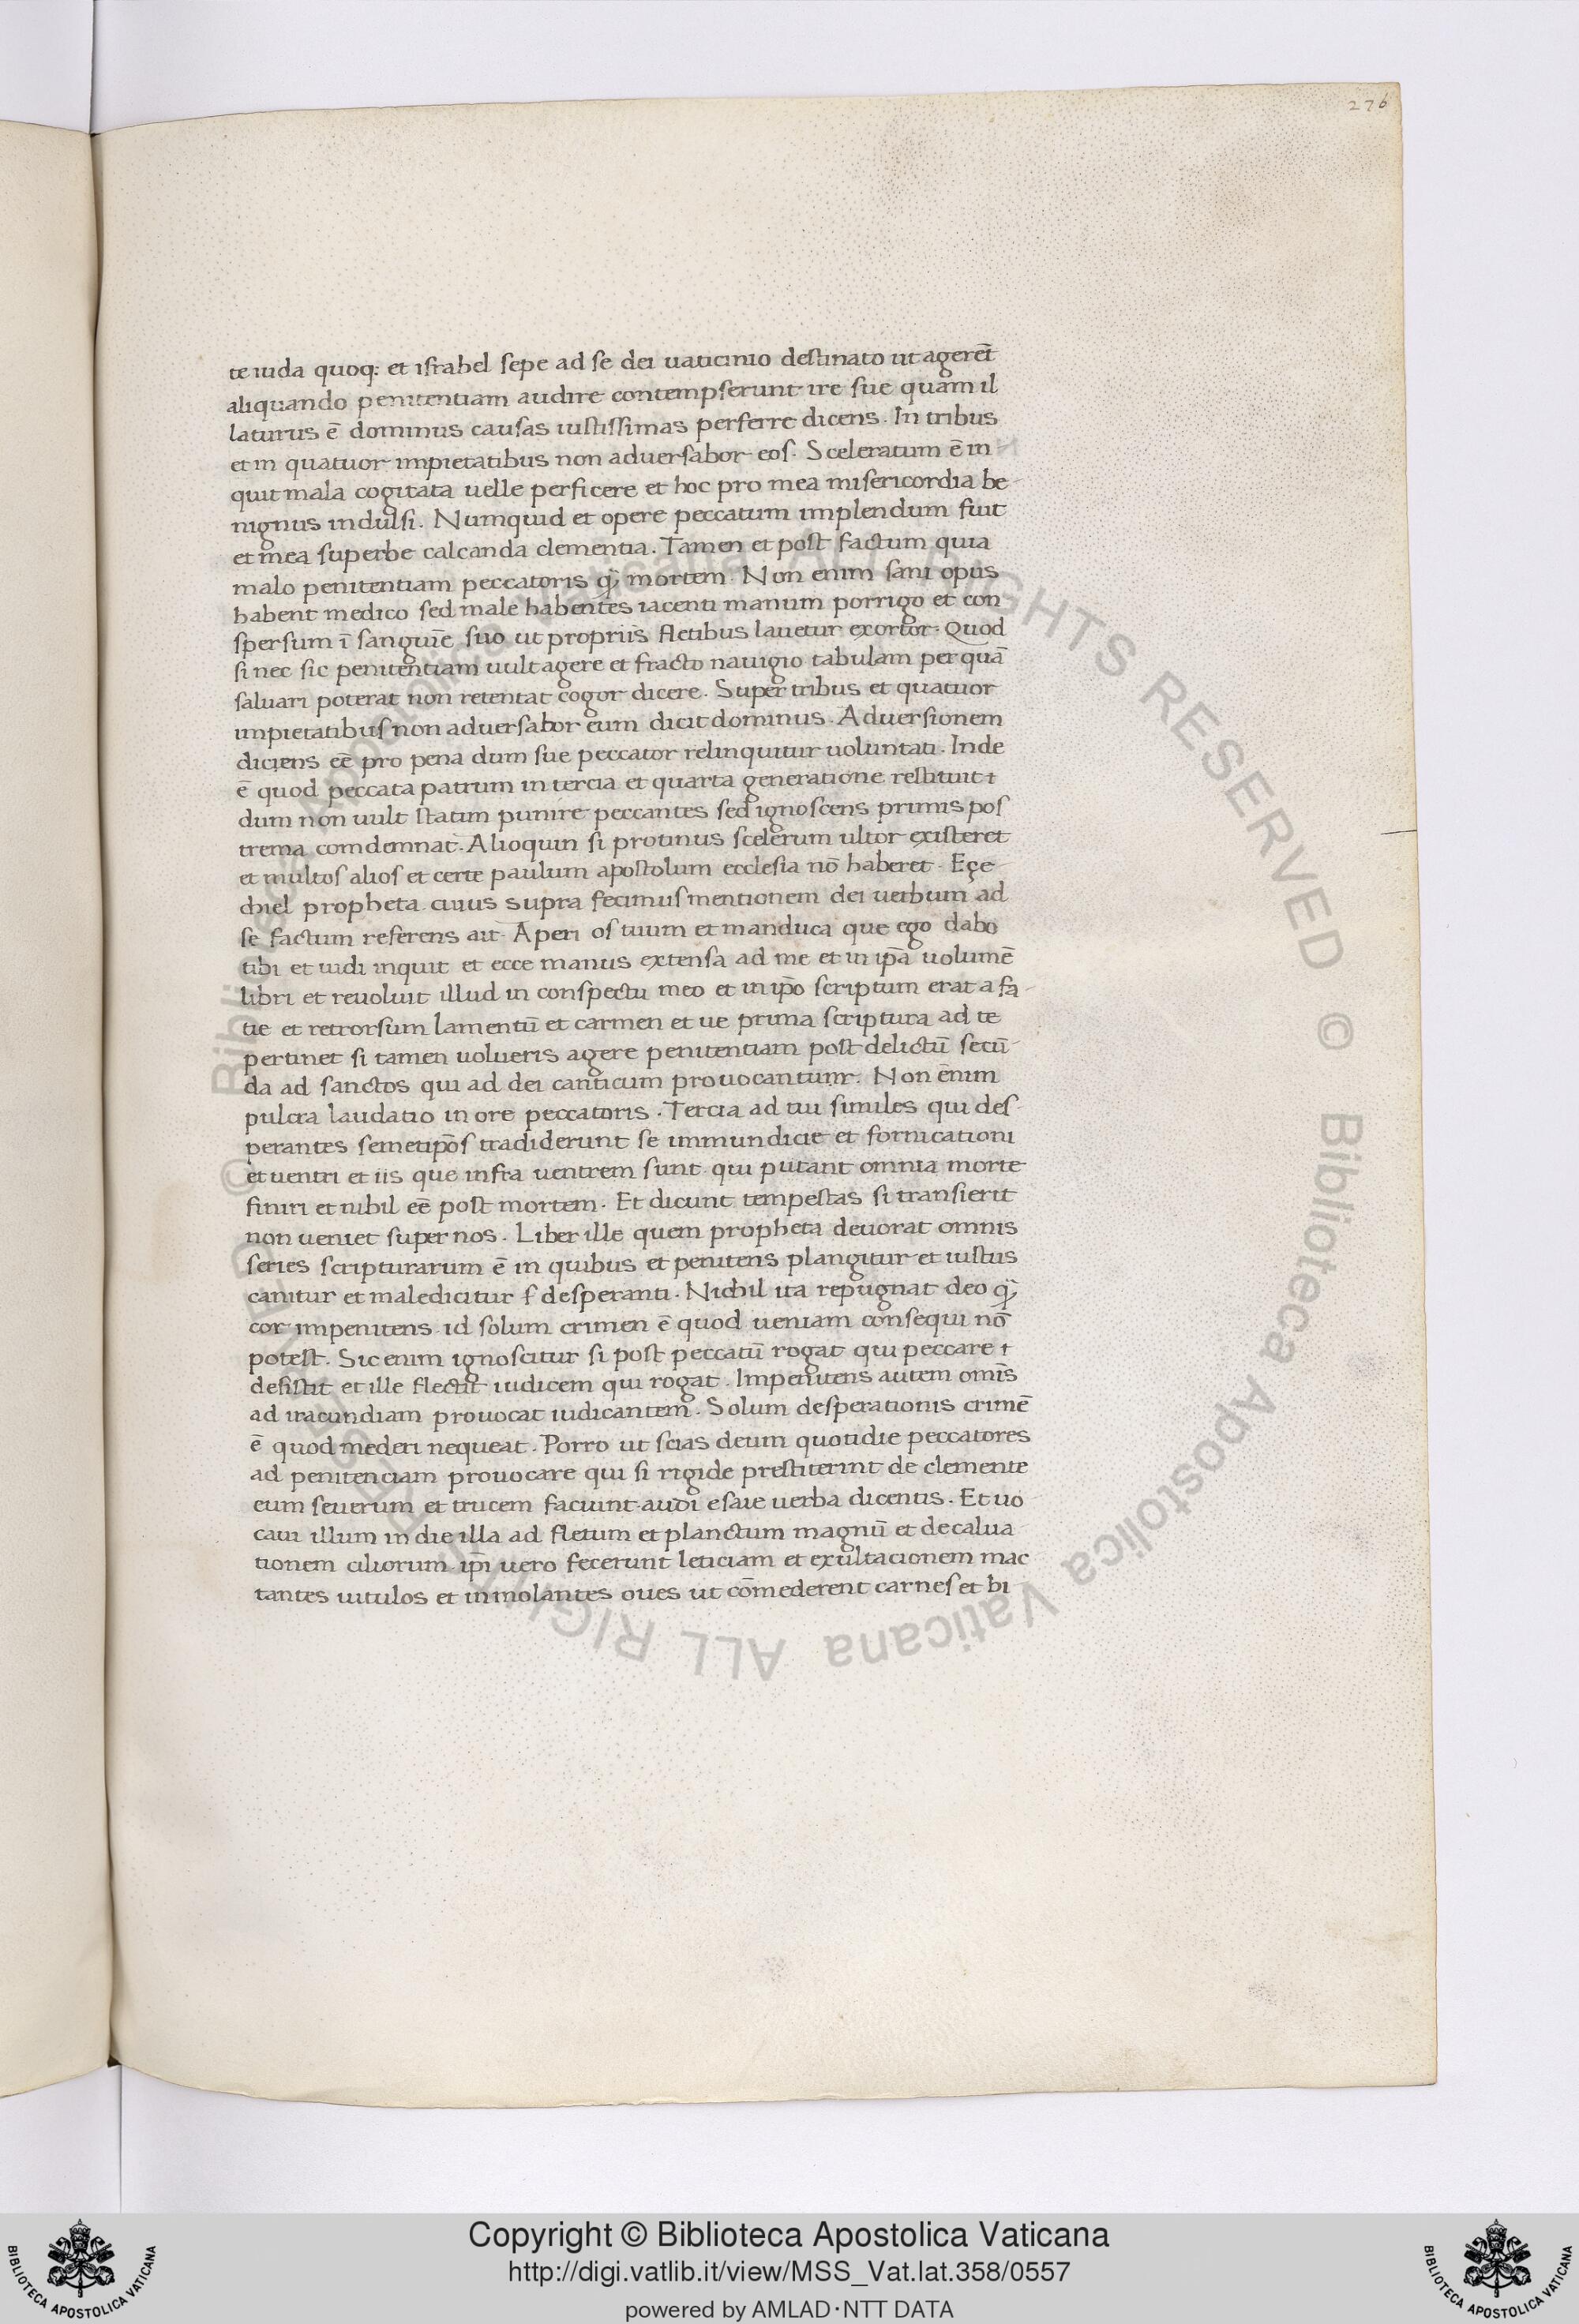 276
te iuda quoq; et israhel sepe ad se dei uaticinio destinato ut agerēt
aliquando penitentiam audire contempserunt ire sue quam il
laturus ē dominus causas iustissimas perferre dicens. In tribus
et in quatuor impietatibus non aduersabor eos. Sceleratum ē in
quit mala cogitata uelle perficere et hoc pro mea misericordia be-
nignus indulsi. Numquid et opere peccatum implendum fuit
et mea superbe calcanda clementia. Tamen et post factum quia
malo penitentiam peccatoris q̃ mortem. Non enim sani opus
habent medico sed male habentes iacenti manum porrigo et con
spersum ī sanguīe suo ut propriis fletibus lauetur exortor. Quod
si nec sic penitentiam uult agere et fracto nauigio tabulam per quā
saluari poterat non retentat cogor dicere. Super tribus et quatuor
impietatibus non aduersabor eum dicit dominus. Aduersionem
diciens eē pro pena dum sue peccator relinquitur uoluntati. Inde
ē quod peccata patrum in tercia et quarta generatione restituit
dum non uult statim punire peccantes sed ignoscens primis pos
trema comdemnat. Alioquin si protinus scelerum ultor existeret
et multos alios et certe paulum apostolum ecclesia nō haberet. Eçe-
chiel propheta cuius supra fecimus mentionem dei uerbum ad
se factum referens ait. Aperi os tuum et manduca que ego dabo
tibi et uidi inquit et ecce manus extensa ad me et in ip̄a uolumē
libri et reuoluit illud in conspectu meo et in ip̄o scriptum erat a fa-
tie et retrorsum lamentū et carmen et ue prima scriptura ad te
pertinet si tamen uolueris agere penitentiam post delictū secū-
da ad sanctos qui ad dei canticum prouocantur. Non enim
pulcra laudatio in ore peccatoris. Tercia ad tui similes qui des-
perantes semetip̄os tradiderunt se immundicie et fornicationi
et uentri et iis que infra uentrem sunt qui putant omnia morte
finiri et nihil eē post mortem. Et dicunt tempestas si transierit
non ueniet super nos. Liber ille quem propheta deuorat omnis
series scripturarum ē in quibus et penitens plangitur et iustus
canitur et maledicitur f desperanti. Nichil ita repugnat deo q̃
cor impenitens id solum crimen ē quod ueniam consequi nō
potest. Sic enim ignoscitur si post peccatū rogat qui peccare
desistit et ille flectit iudicem qui rogat. Impenitens autem omīs
ad iracundiam prouocat iudicantem. Solum desperationis crimē
ē quod mederi nequeat. Porro ut scias deum quotidie peccatores
ad penitenciam prouocare qui si rigide prestiterint de clemente
eum seuerum et trucem faciunt audi esaie uerba dicentis. Et uo
caui illum in die illa ad fletum et planctum magnū et decalua
tionem ciliorum ip̄i uero fecerunt leticiam et exultacionem mac
tantes uitulos et inmolantes oues ut cōmederent carnes et bi
© Biblioteca Apostolica Vaticana ALL RIGHTS RESERVED © Biblioteca Apostolica Vaticana ALL RIGHTS RESERVED
Copyright © Biblioteca Apostolica Vaticana
http://digi.vatlib.it/view/MSS_Vat.lat.358/0557
powered by AMLAD·NTT DATA
BIBLIOTECA APOSTOLICA VATICANA
BIBLIOTECA APOSTOLICA VATICANA